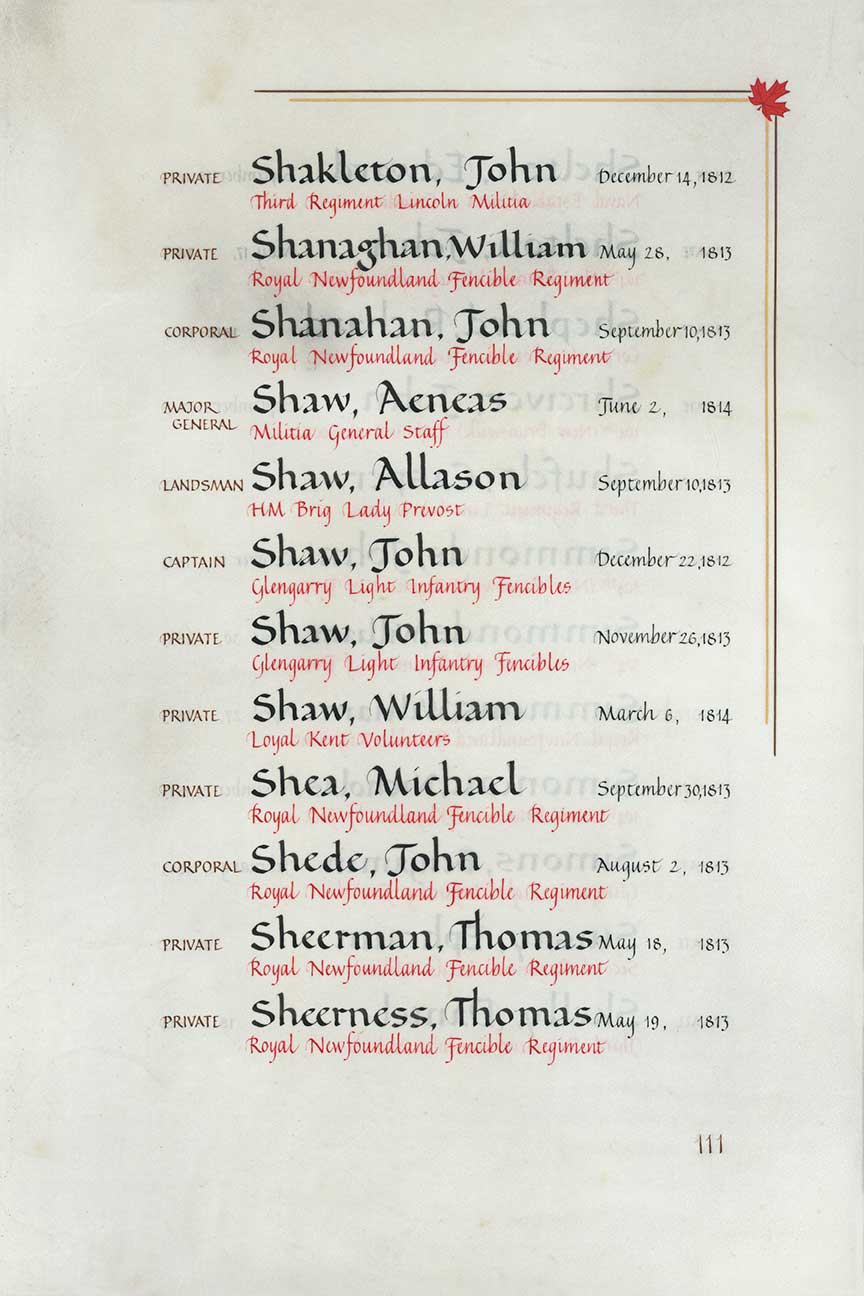 PRIVATE Shakleton, John December 14, 1812
Third Regiment Lincoln Militia
PRIVATE Shanaghan, William May 28, 1813
Royal Newfoundland Fencible Regiment
CORPORAL Shanahan, John September 10, 1813
Royal Newfoundland Fencible Regiment
MAJOR GENERAL Shaw, Aeneas June 2, 1814
Militia General Staff
LANDSMAN Shaw, Allason September 10, 1813
HM Brig Lady Prevost
CAPTAIN Shaw, John December 22, 1812
Glengarry Light Infantry Fencibles
PRIVATE Shaw, John November 26, 1813
Glengarry Light Infantry Fencibles
PRIVATE Shaw, William March 6, 1814
Loyal Kent Volunteers
PRIVATE Shea, Michael September 30, 1813
Royal Newfoundland Fencible Regiment
CORPORAL Shede, John August 2, 1813
Royal Newfoundland Fencible Regiment
PRIVATE Sheerman, Thomas May 18, 1813
Royal Newfoundland Fencible Regiment
PRIVATE Sheerness, Thomas May 19, 1813
Royal Newfoundland Fencible Regiment
111